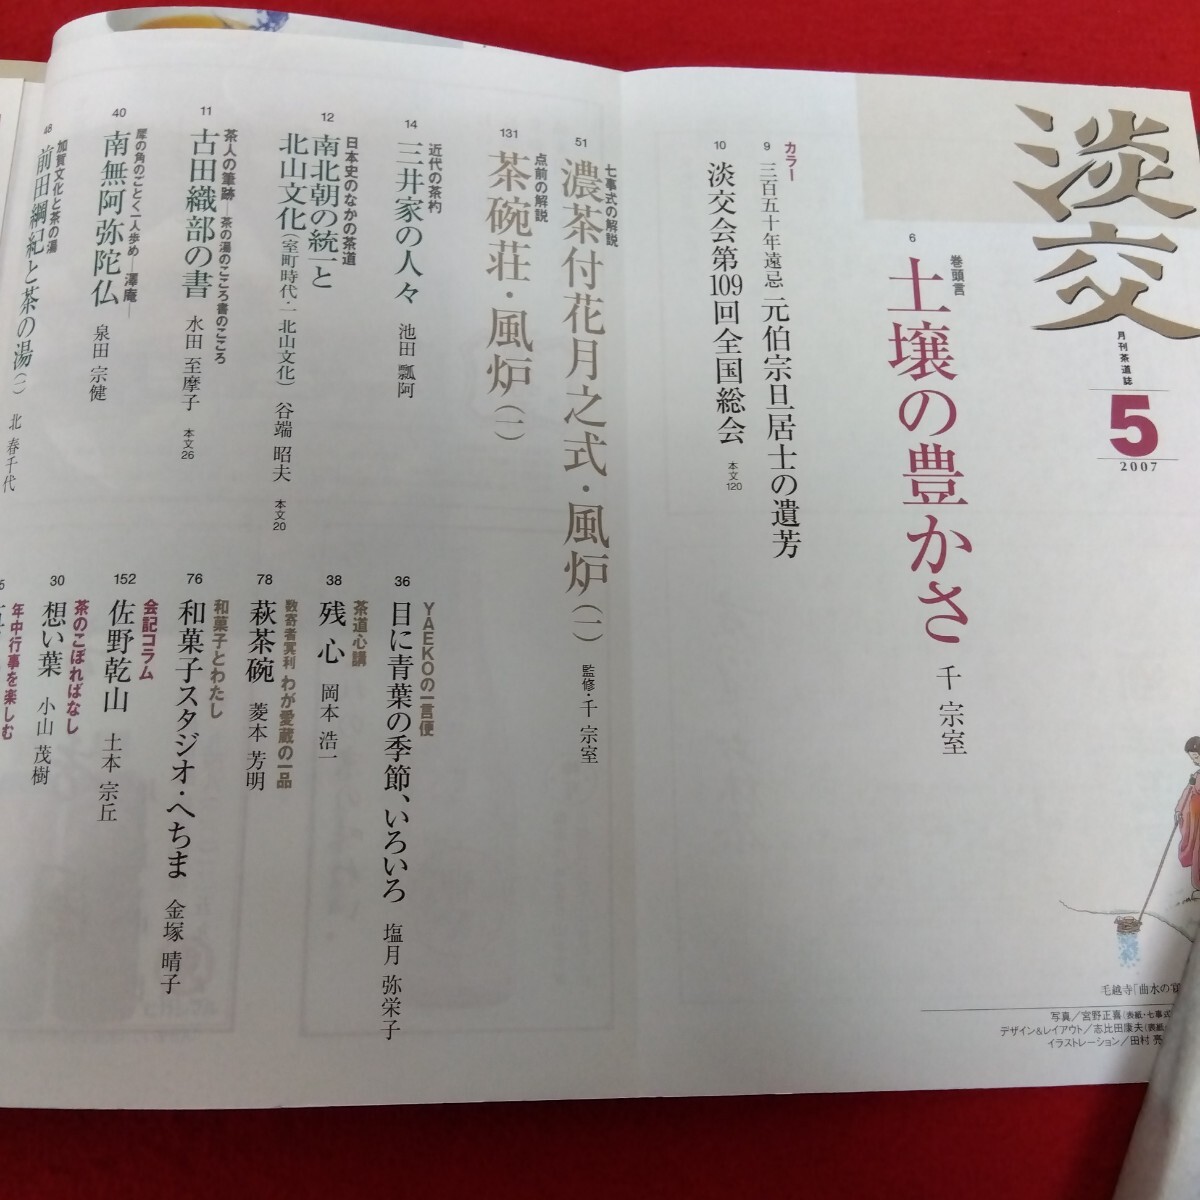 淡交
月刊茶道誌
5
2007
巻頭言
6
土壌の豊かさ 千 宗室
カラー
9
三百五十年遠忌 元伯宗旦居士の遺芳
10
淡交会第109回全国総会 本文120
七事式の解説
51
濃茶付花月之式・風炉(一) 監修・千 宗室
点前の解説
131
茶碗荘・風炉(一)
近代の茶杓
14
三井家の人々 池田 瓢阿
日本史のなかの茶道
12
南北朝の統一と
北山文化(室町時代・一 北山文化) 谷端 昭夫 本文20
茶人の筆跡―茶の湯のこころ書のこころ
11
古田織部の書 水田 至摩子 本文26
犀の角のごとく一人歩め―澤庵―
40
南無阿弥陀仏 泉田 宗健
加賀文化と茶の湯
48
前田綱紀と茶の湯(一) 北 春千代
YAEKOの一言便
36
目に青葉の季節、いろいろ 塩月 弥栄子
茶道心講
38
残心 岡本 浩一
数寄者冥利 わが愛蔵の一品
78
萩茶碗 菱本 芳明
和菓子とわたし
76
和菓子スタジオ・へちま 金塚 晴子
会記コラム
152
佐野乾山 土本 宗丘
茶のこぼればなし
30
想い葉 小山 茂樹
年中行事を楽しむ
毛越寺「曲水の宴
写真/宮野正喜(表紙・七事式
デザイン&レイアウト/志比田康夫(表紙・
イラストレーション/田村 亮